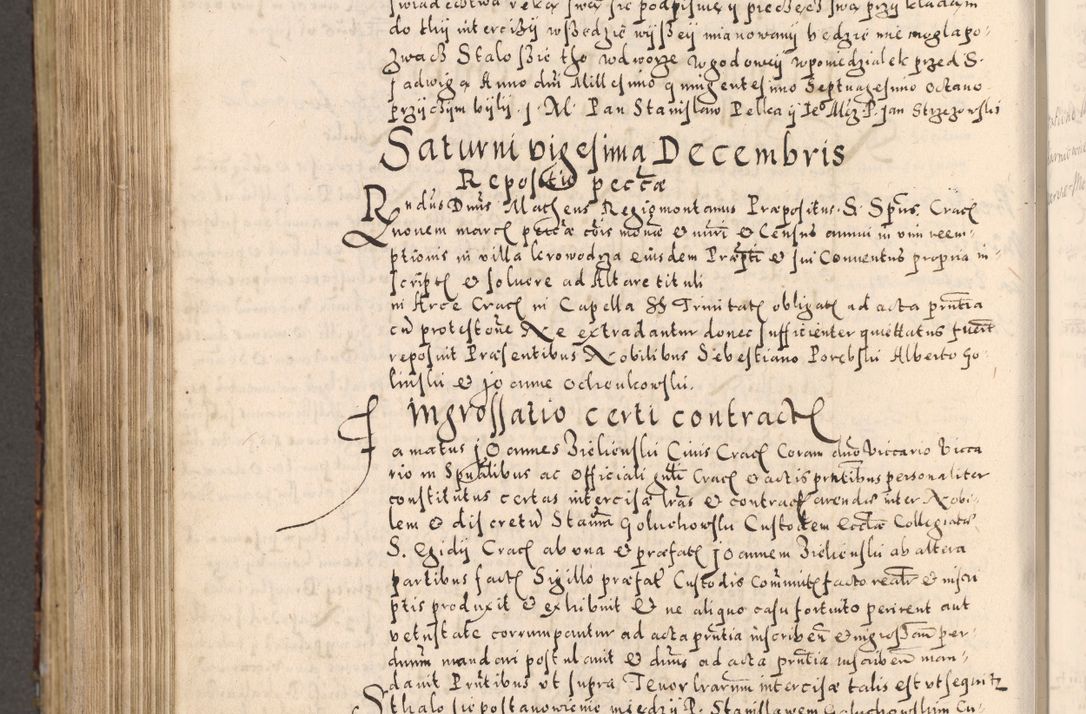 swiadecztwa reką swą sie podpisuię y pieczęcz swą przykładam
do thij intercizij wszędzie wijszeij mianowanij bedzie mie mogla po-
zwacz Stalo szie tho wdworze wgodoweij wponiedzialek przed S.
Jadwigą Anno dni Millesimo quingentesimo Septuagesimo octano
przijczijm bijlij J. M. Pan Stanislaw Pelka ij Je⁰ Mcz P. Jan Strzezowski
Saturni vigesima Decembris
Repositio peccæ
Rndus Dnus Matheus Regiomontanus Præpositus S. Spūs. Crac
nonem marc peccæ cois monæ & nuri & Census annui in vim reem-
ptionis in villa Krowodrza eiusdem Præpti & sui Conuentus propria in-
script & soluere ad Altare tituli
in Arce Crac in Capella SS Trinitat obligat ad acta pntia
cu protestone Ne extradantur donec sufficienter quiettatus fuerit
reposuit Præsentibus Nobilibus Sebestiano Porębski Alberto Go-
linski & Joanne Ochonkowski.
Ingrossatio certi contract
Famatus Joannes Zielienski Ciuis Crac Coram dno Viccario Vicca
rio in Spualibus ac Officiali gnli Crac & actis pntibus personaliter
constitutus certas intercisæ lras & contract arendæ inter Nobi-
lem & discretu Stanm Goluchowski Custodem Ecclæ Collegiatæ
S. Egidij Crac ab vna & præfat Joannem Zielienski ab altera
partibus fact Sigillo præfat Custodis Communit facto realr & inscri
ptis produxit & exhibuit & ne aliquo casu fortuito perirent aut
vetustate corrumpantur ad acta pntia inscriben & ingrossari per-
dnum mandari postulauit & dnus ad acta pntia inscriben man-
dauit Pntibus vt supra Tenor lrarum intercisæ talis est vt sequitz
Sthalo sie postanowienie miedzij P. Stanislawem Goluchowskim Cu-